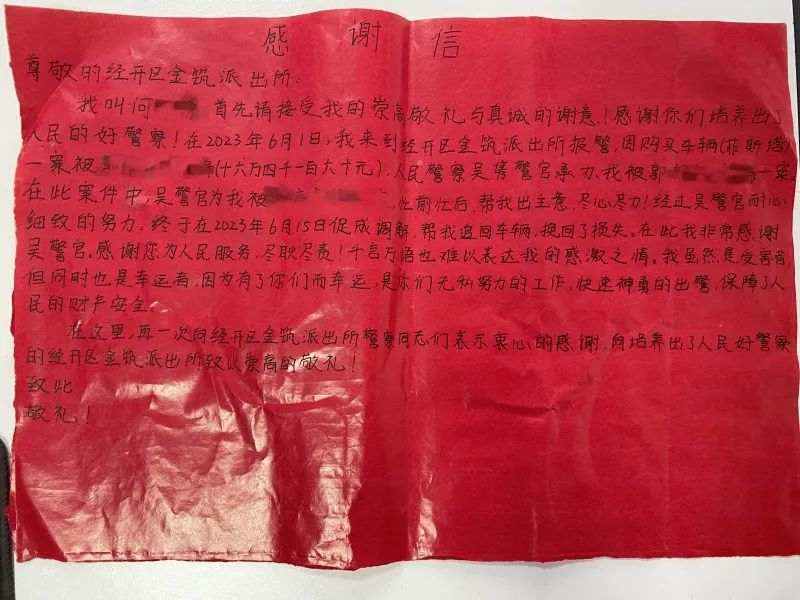 感谢信
尊敬的经开区金筑派出所:
我叫何 首先请接受我的崇高敬礼与真诚的谢意!感谢你们培养出了
人民的好警察!在2023年6月1日,我来到经开区金筑派出所报警,因购买车辆(菲斯塔)
一案被 (十六万四千一百六十元),人民警察吴隽警官承办,我被郭 一案。
在此案件中,吴警官为我被 忙前忙后,帮我出主意,尽心尽力!经过吴警官耐心
细致的努力,终于在2023年6月15日促成调解,帮我追回车辆,挽回了损失。在此我非常感谢
吴警官。感谢您为人民服务,尽职尽责!千言万语也难以表达我的感激之情。我虽然是受害者,
但同时也是幸运者,因为有了你们而幸运,是你们无私努力的工作、快速神勇的出警,保障了人
民的财产安全。
在这里,再一次向经开区金筑派出所警察同志们表示衷心的感谢,向培养出了人民好警察
的经开区金筑派出所致以崇高的敬礼!
致此
敬礼!